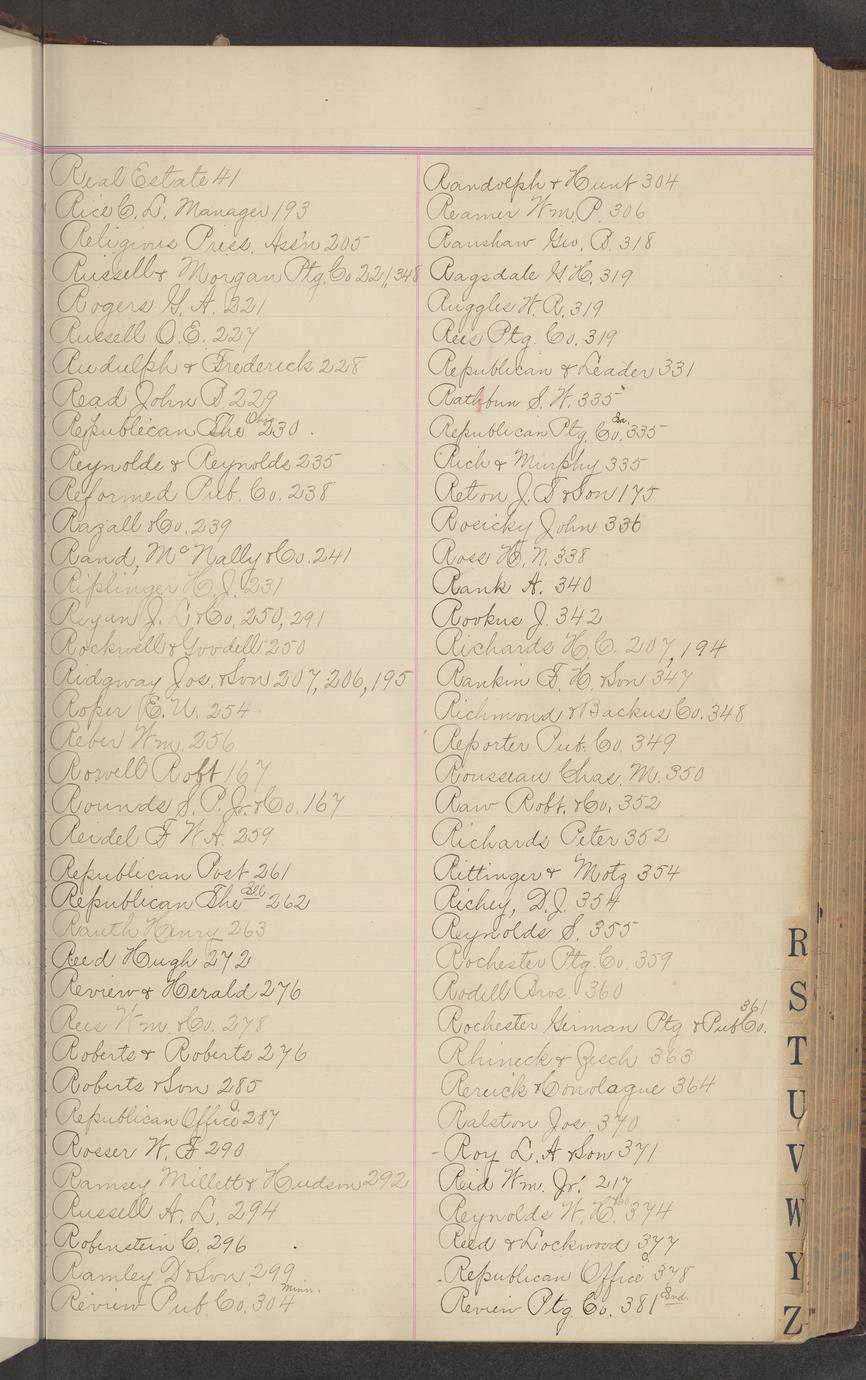 Real Estate 41
Rice C. L. Manager 193
Religious Press. Ass'n 205
Russell & Morgan Ptg. Co 221, 348
Rogers G. A. 221
Russell O. E. 227
Rudulph & Frederick 228
Read John B 229
Republican The Ohio 230.
Reynolds & Reynolds 235
Reformed Pub. Co. 238
Razall & Co. 239
Rand, McNally & Co. 241
Riplinger H. J. 231
Ryan J. L. & Co, 250, 291
Rockwell & Goodell 250
Ridgway Jos. & Son 207, 206, 195
Roper E. U. 254
Reber Wm. 256
Rowell Robt 167
Rounds S. P. Jr. & Co. 167
Reidel F W A. 259
Republican Post 261
Republican The 262
Rauth Henry 263
Reed Hugh 272
Review & Herald 276
Reis Wm. & Co. 278
Roberts & Roberts 276
Roberts & Son 285
Republican Office 287
Rosser W. F 290
Ramsey Millett & Hudson 292
Russell A. L. 294
Robinstein C. 296
Ramley D & Son 299
Review Pub. Co. 304 Minn.
Randolph & Hunt 304
Reamer Wm. P. 306
Ranshaw Geo. B. 318
Ragsdale G H. 319
Ruggles W. R. 319
Reis Ptg. Co. 319
Republican & Leader 331
Rathbun S. W. 335
Republican Ptg Co. 335
Rich & Murphy 335
Reton J. F & Son 175
Rosicky John 336
Ross H. N. 338
Rank A. 340
Rookus J. 342
Richards H. C. 207, 194
Rankin F. H. & Son 347
Richmond & Backus Co. 348
Reporter Pub. Co. 349
Rousseau Chas. M. 350
Raw Robt. & Co. 352
Richards Peter 352
Rittinger & Motz 354
Richey, D. J. 354
Reynolds S. 355
Rochester Ptg. Co. 359
Rodell Bros. 360
Rochester German Ptg & Pub Co. 361
Rhineck & Zesch 363
& Conolague 364
Ralston Jos. 370
- Roy L. A & Son 371
Reid Wm. Jr. 217
Reynolds W. H. 374
Reed & Lockwood 377
Republican Office 378
Review Ptg. Co. 381
R
S
T
U
V
W
Y
Z